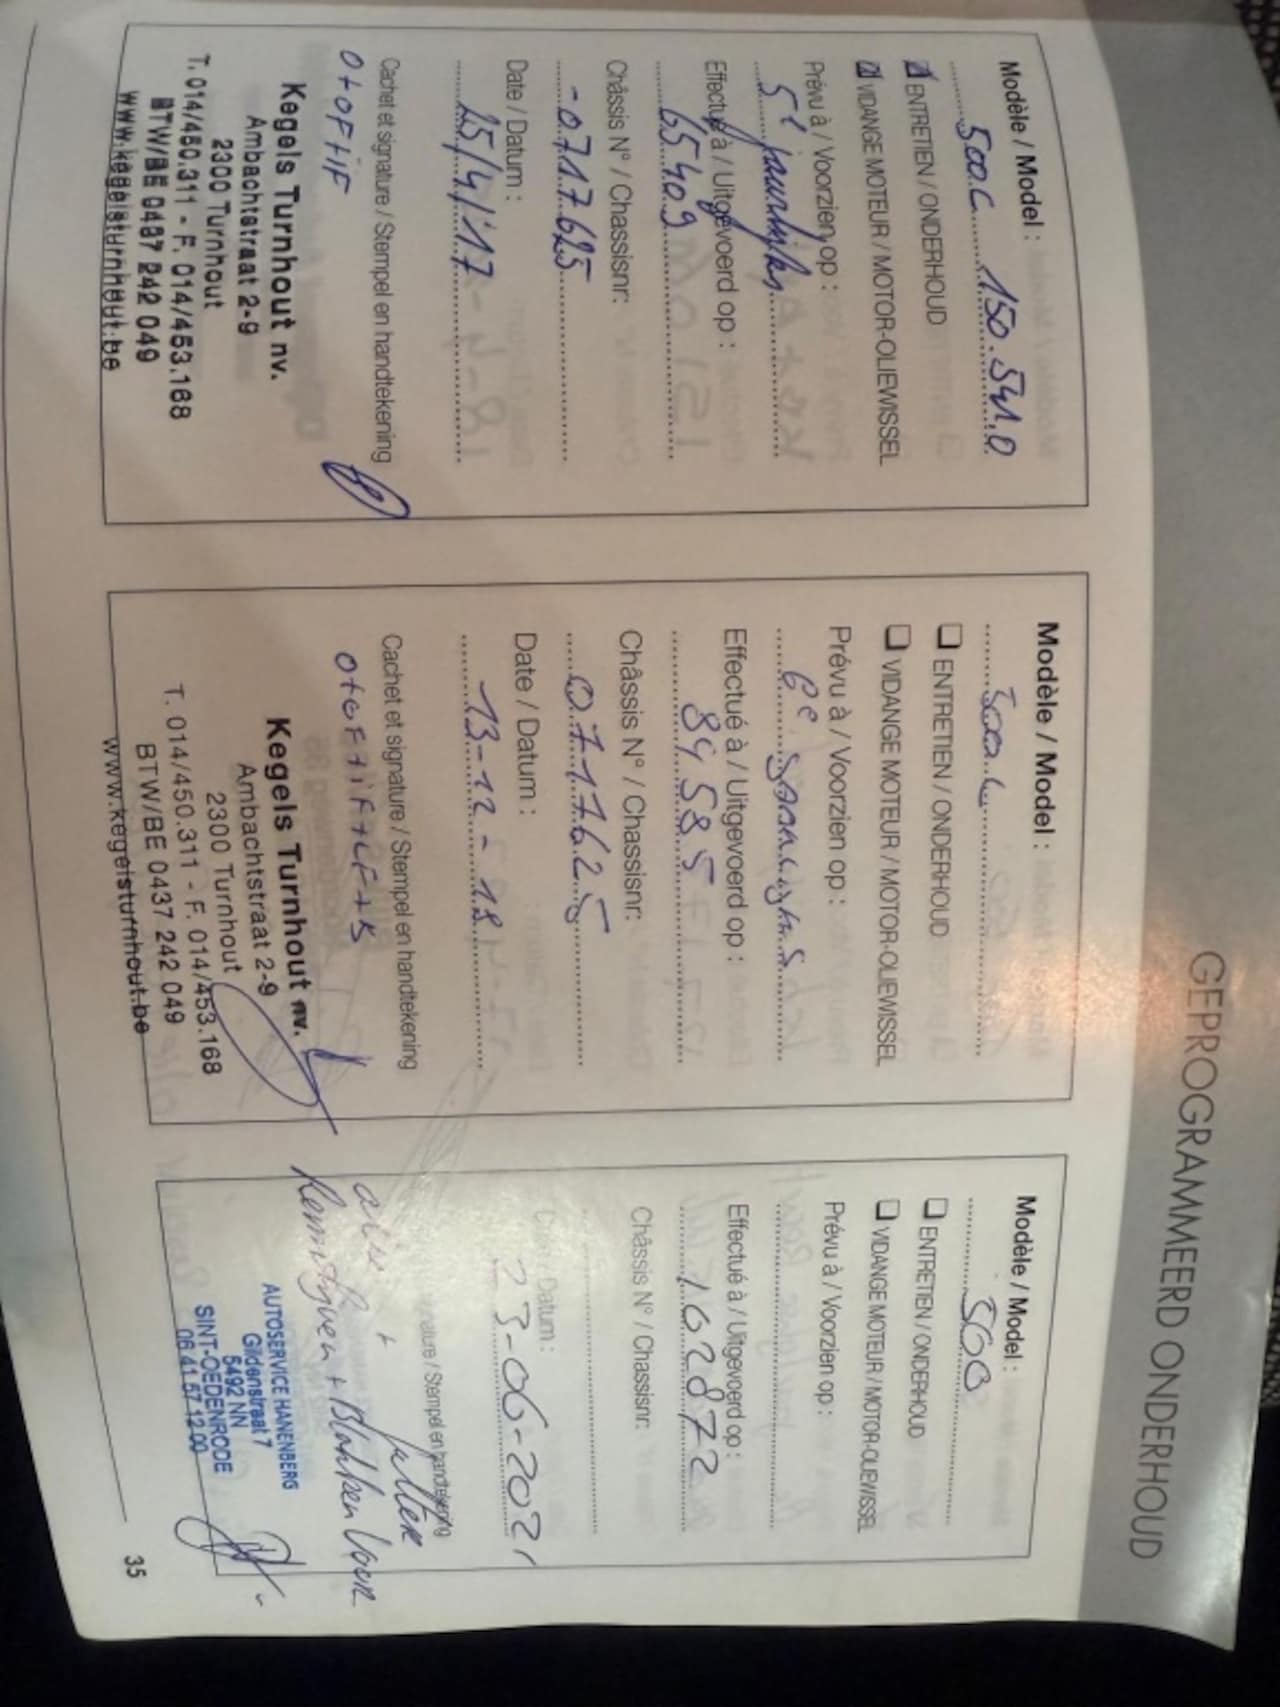 GEPROGRAMMEERD ONDERHOUD
Modèle / Model :
500.C 150.541.0
ENTRETIEN / ONDERHOUD
VIDANGE MOTEUR / MOTOR-OLIEWISSEL
Prévu à / Voorzien op :
5e jaarlijks
Effectué à / Uitgevoerd op :
65409
Châssis N° / Chassisnr:
-0717625
Date / Datum :
25/4/'17
Cachet et signature / Stempel en handtekening
O+OF+iF
Kegels Turnhout nv.
Ambachtstraat 2-9
2300 Turnhout
T. 014/450.311 - F. 014/453.168
BTW/BE 0437 242 049
www.kegelsturnhout.be
Modèle / Model :
500 C
ENTRETIEN / ONDERHOUD
VIDANGE MOTEUR / MOTOR-OLIEWISSEL
Prévu à / Voorzien op :
6e
Effectué à / Uitgevoerd op :
84585
Châssis N° / Chassisnr:
0717625
Date / Datum :
13-12-18
Cachet et signature / Stempel en handtekening
O+OF+iF+CF+B
Kegels Turnhout nv.
Ambachtstraat 2-9
2300 Turnhout
T. 014/450.311 - F. 014/453.168
BTW/BE 0437 242 049
www.kegelsturnhout.be
Modèle / Model :
500
ENTRETIEN / ONDERHOUD
VIDANGE MOTEUR / MOTOR-OLIEWISSEL
Prévu à / Voorzien op :
Effectué à / Uitgevoerd op :
162872
Châssis N° / Chassisnr:
Date / Datum :
23-06-2021
signature / Stempel en handtekening
olie + filter
Remschijven + Blokken Voor
AUTOSERVICE HANENBERG
Gildenstraat 7
5492 NN
SINT-OEDENRODE
06 41 57 12 00
35